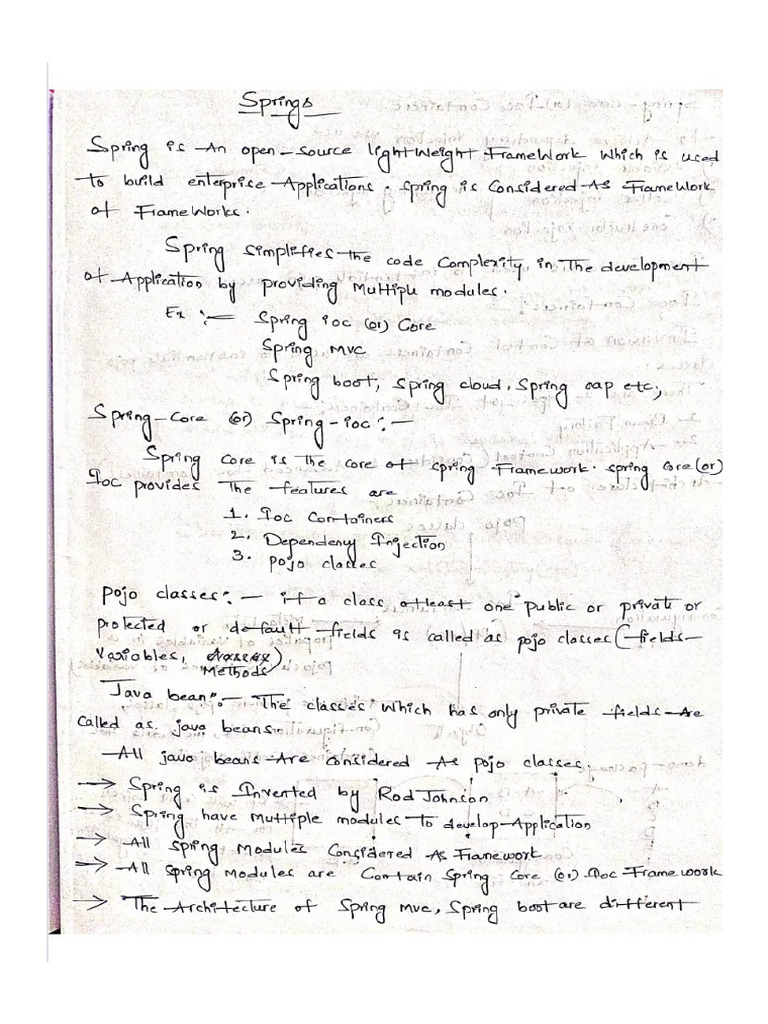 Springs
Spring is An open-source lightweight FrameWork which is used
to build enterprise Applications. spring is Considered As FrameWork
of FrameWorks.
Spring simplifies the code Complexity in The development
of Application by providing Multiple modules.
Ex :- Spring ioc (or) Core
Spring MVC
Spring boot, Spring cloud, Spring aop etc;
Spring-Core (or) Spring-ioc :-
Spring Core is The core of Spring Framework. spring Core (or)
Ioc provides The features are
1. Ioc Containers
2. Dependency Injection
3. Pojo classes
Pojo classes :- if a class atleast one public or private or
protected or default fields is called as pojo classes (fields-
Variables,
Methods)
Java bean :- The classes which has only private fields Are
called as java beans
All java beans Are Considered As pojo classes
→ Spring is Invented by Rod Johnson
→ Spring have Multiple modules To develop Application
→ All Spring Modules Considered As Framework
→ All Spring Modules are Contain Spring Core (or) Ioc Framework
→ The Architecture of Spring MVC, Spring boot are different